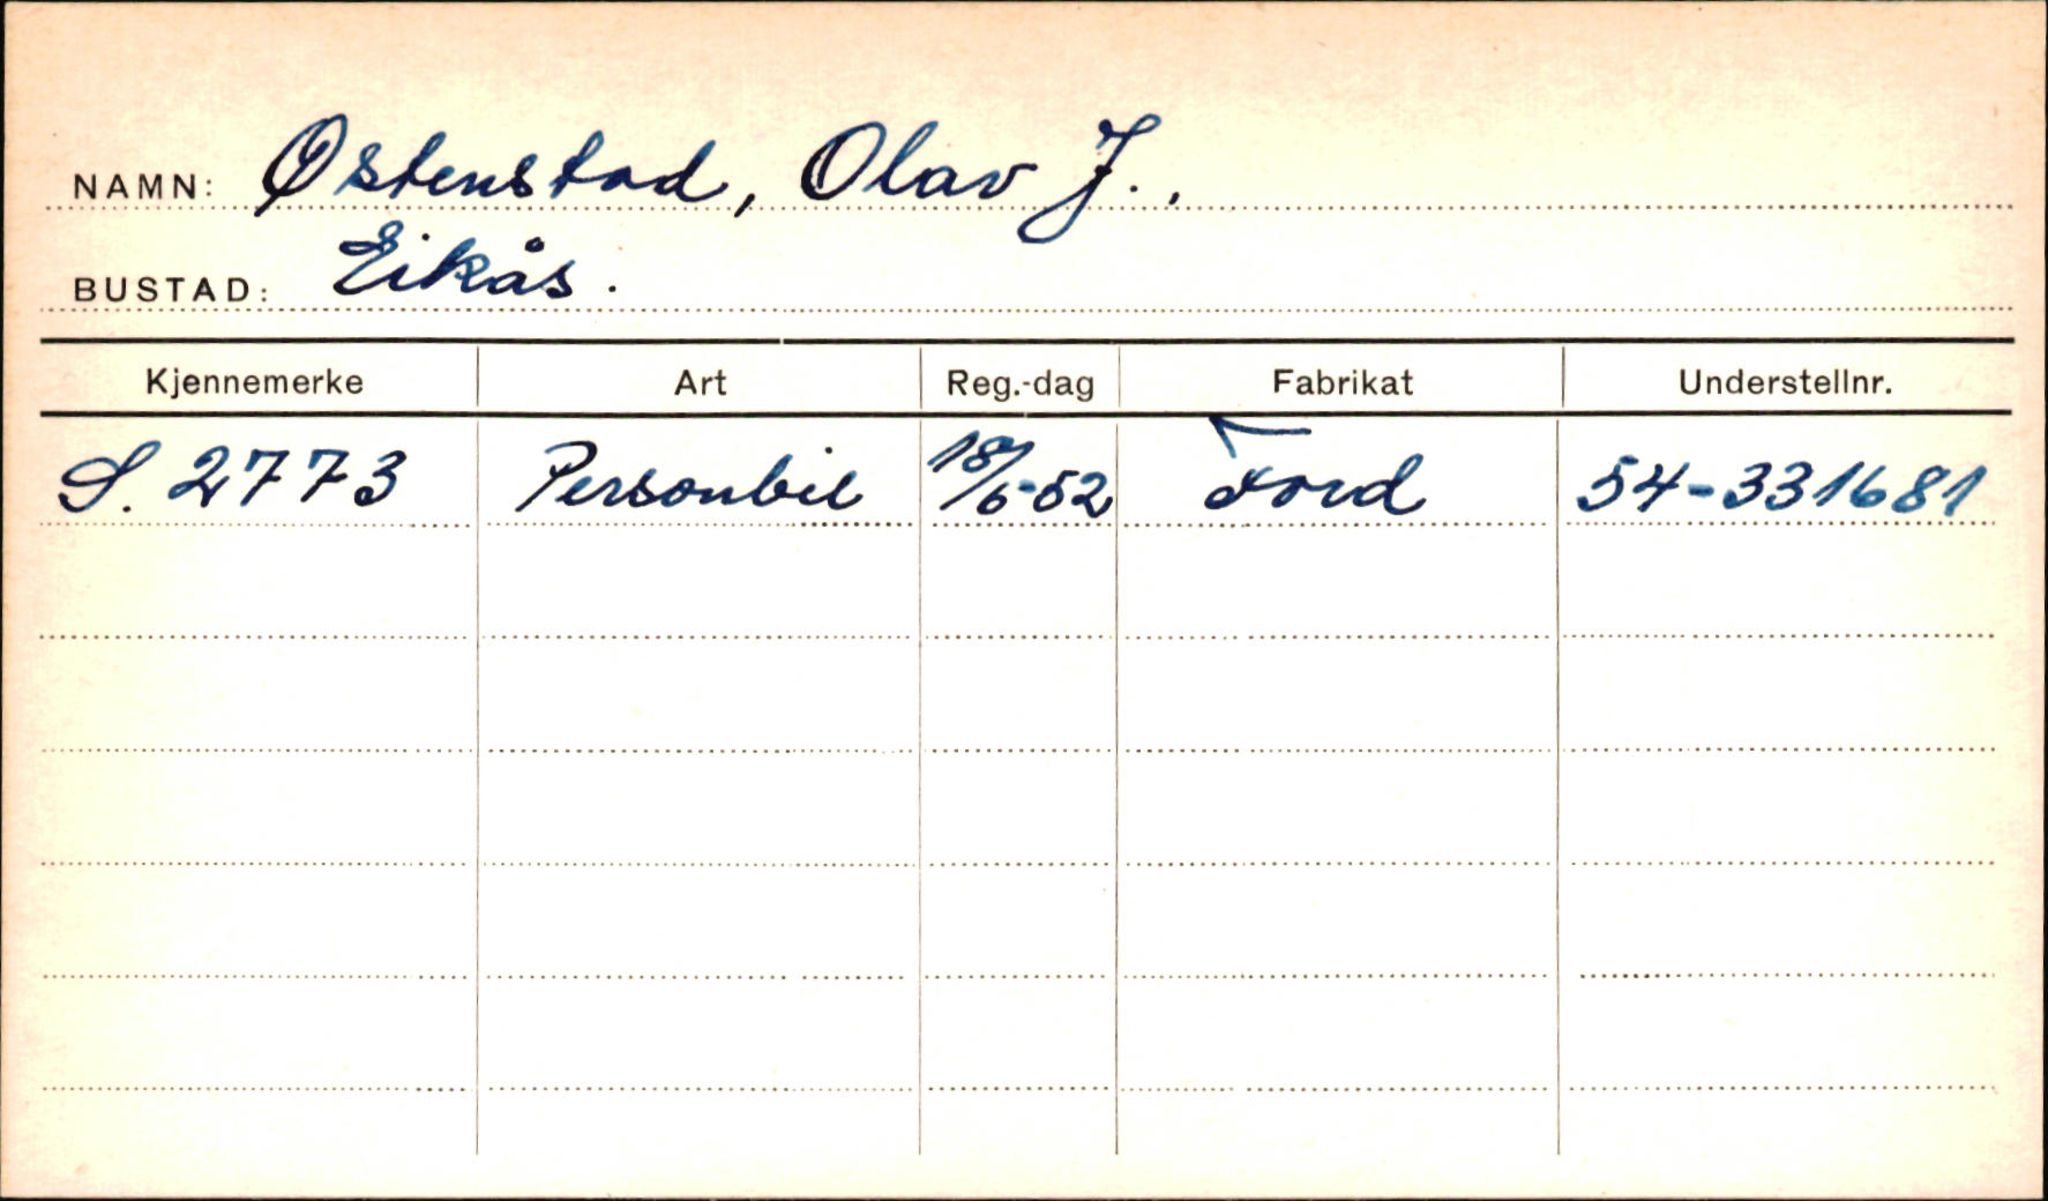 NAMN: Østenstad, Olav J.,
BUSTAD: Eikås.
Kjennemerke Art Reg.-dag Fabrikat Understellnr.
S. 2773 Personbil 18/6-52 Ford 54-331681